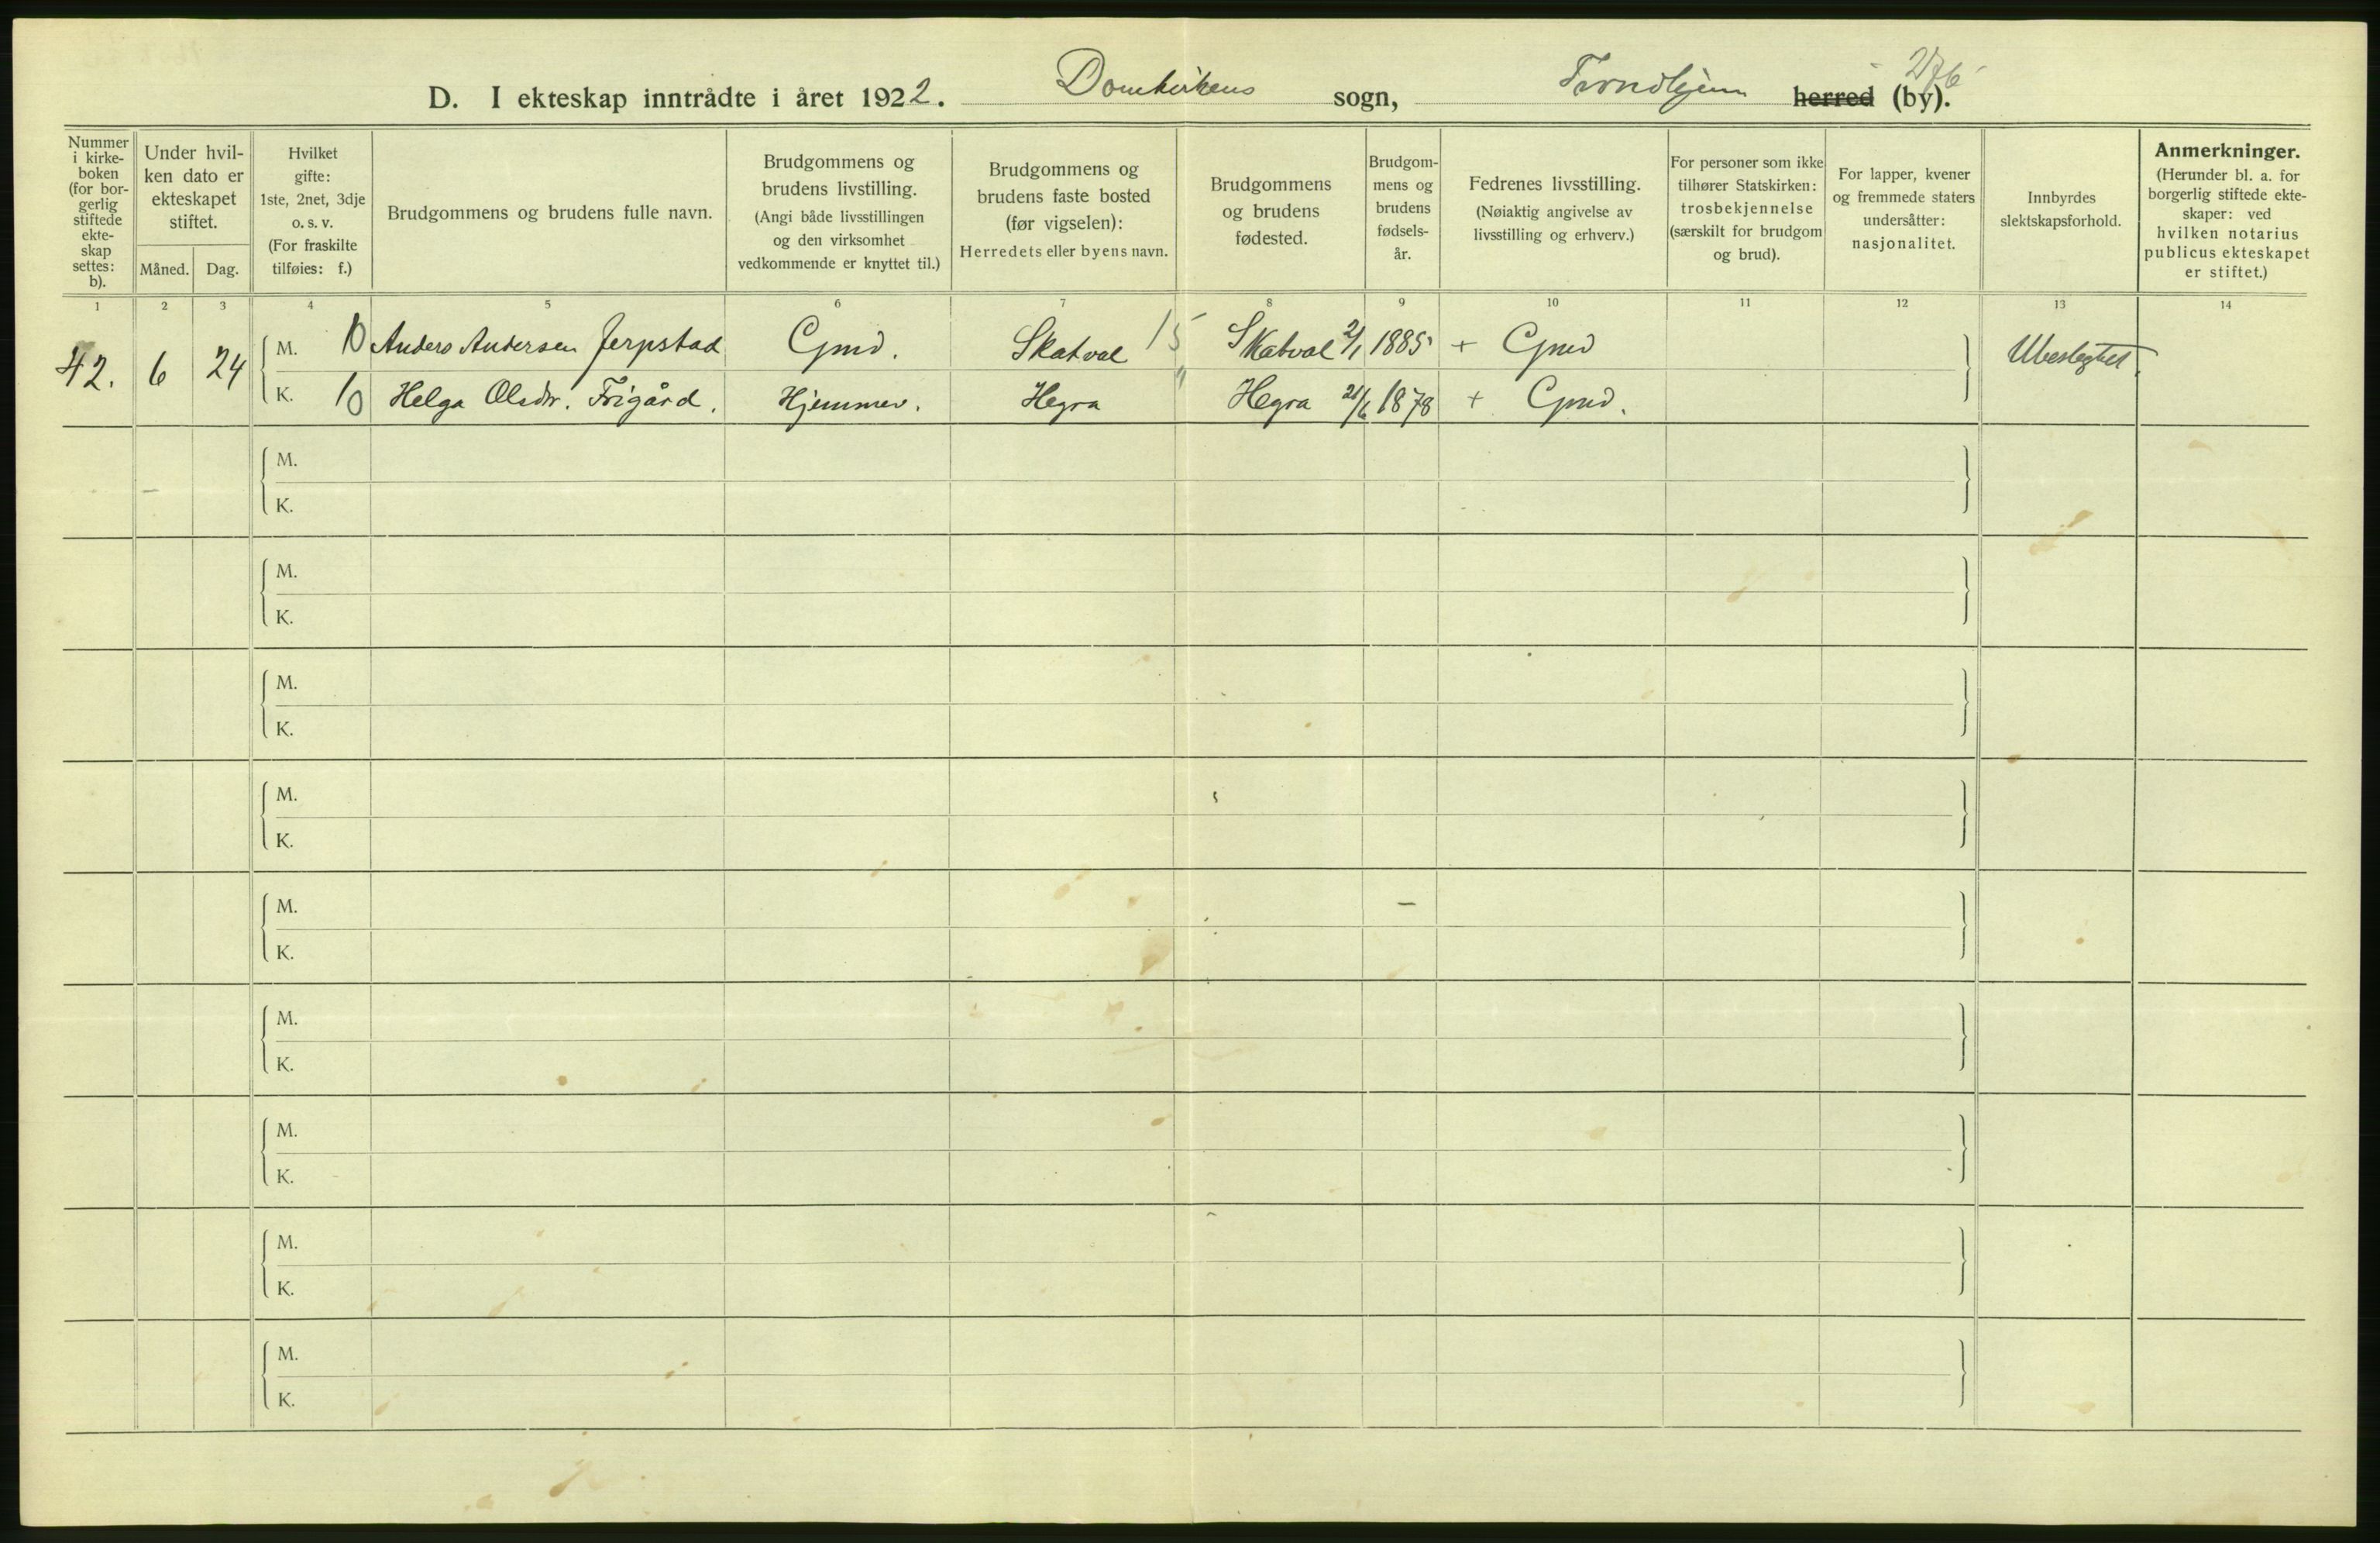 276
D. I ekteskap inntrådte i året 1922. Domkirkens sogn, Trondhjem herred (by).
Nummer i kirke-boken (for bor-gerlig stiftede ekte-skap settes: b).
Under hvil-ken dato er ekteskapet stiftet.
Måned. Dag.
Hvilket gifte: 1ste, 2net, 3dje o. s. v. (For fraskilte tilføies: f.)
Brudgommens og brudens fulle navn.
Brudgommens og brudens livstilling. (Angi både livsstillingen og den virksomhet vedkommende er knyttet til.)
Brudgommens og brudens faste bosted (før vigselen): Herredets eller byens navn.
Brudgommens og brudens fødested.
Brudgom-mens og brudens fødsels-år.
Fedrenes livsstilling. (Nøiaktig angivelse av livsstilling og erhverv.)
For personer som ikke tilhører Statskirken: trosbekjennelse (særskilt for brudgom og brud).
For lapper, kvener og fremmede staters undersåtter: nasjonalitet.
Innbyrdes slektskapsforhold.
Anmerkninger. (Herunder bl. a. for borgerlig stiftede ekte-skaper: ved hvilken notarius publicus ekteskapet er stiftet.)
1 2 3 4 5 6 7 8 9 10 11 12 13 14
42. 6 24 M. 10 Anders Andersen Jerpstad Gmd. Skatval 15 Skatval 2/1 1885 + Gmd Ubeslegtet.
K. 10 Helga Olsdtr. Frigård. Hjemmev. Hegra " Hegra 21/6 1878 + Gmd.
M.
K.
M.
K.
M.
K.
M.
K.
M.
K.
M.
K.
M.
K.
M.
K.
M.
K.